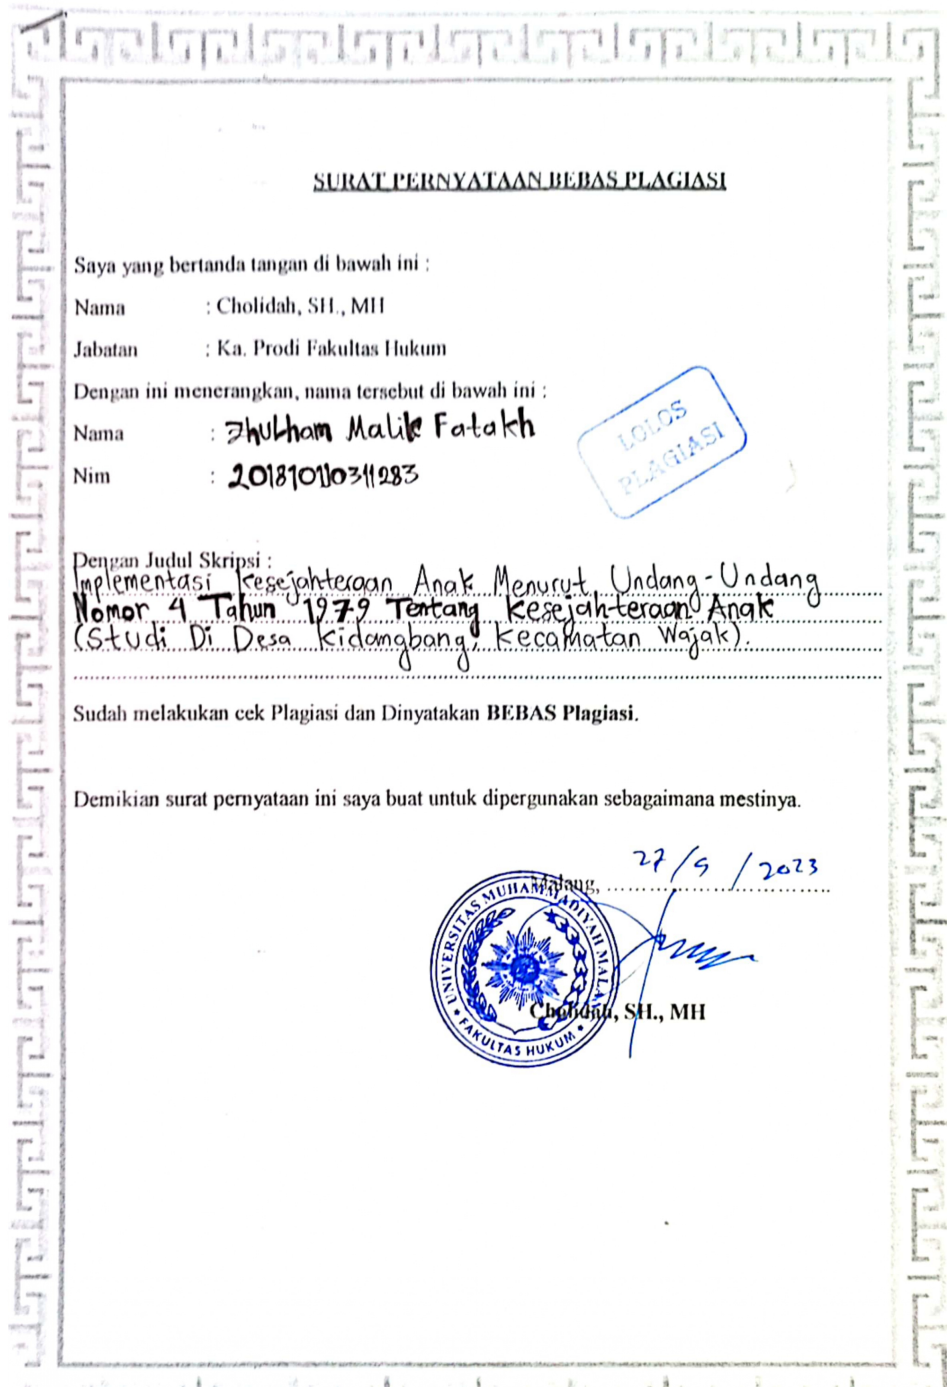 SURAT PERNYATAAN BEBAS PLAGIASI
Saya yang bertanda tangan di bawah ini :
Nama : Cholidah, SH., MH
Jabatan : Ka. Prodi Fakultas Hukum
Dengan ini menerangkan, nama tersebut di bawah ini :
Nama : Zhulham Malik Fatakh
Nim : 201810110311283
LOLOS
PLAGIASI
Dengan Judul Skripsi :
Implementasi Kesejahteraan Anak Menurut Undang-Undang
Nomor 4 Tahun 1979 Tentang Kesejahteraan Anak
(Studi Di Desa Kidangbang, Kecamatan Wajak).
Sudah melakukan cek Plagiasi dan Dinyatakan BEBAS Plagiasi.
Demikian surat pernyataan ini saya buat untuk dipergunakan sebagaimana mestinya.
Malang, 27/9/2023
UNIVERSITAS MUHAMMADIYAH MALANG
FAKULTAS HUKUM
Cholidah, SH., MH